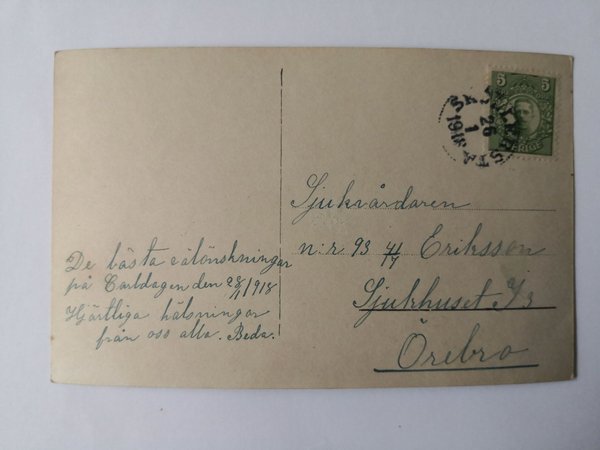 5 5
SVERIGE
26
1
1918
Sjukvårdaren
n:r 93 41/7 Eriksson
Sjukhuset I/3
Örebro
De bästa välönskningar
på Carldagen den 28/1 1918
Hjärtliga hälsningar
från oss alla. Beda.